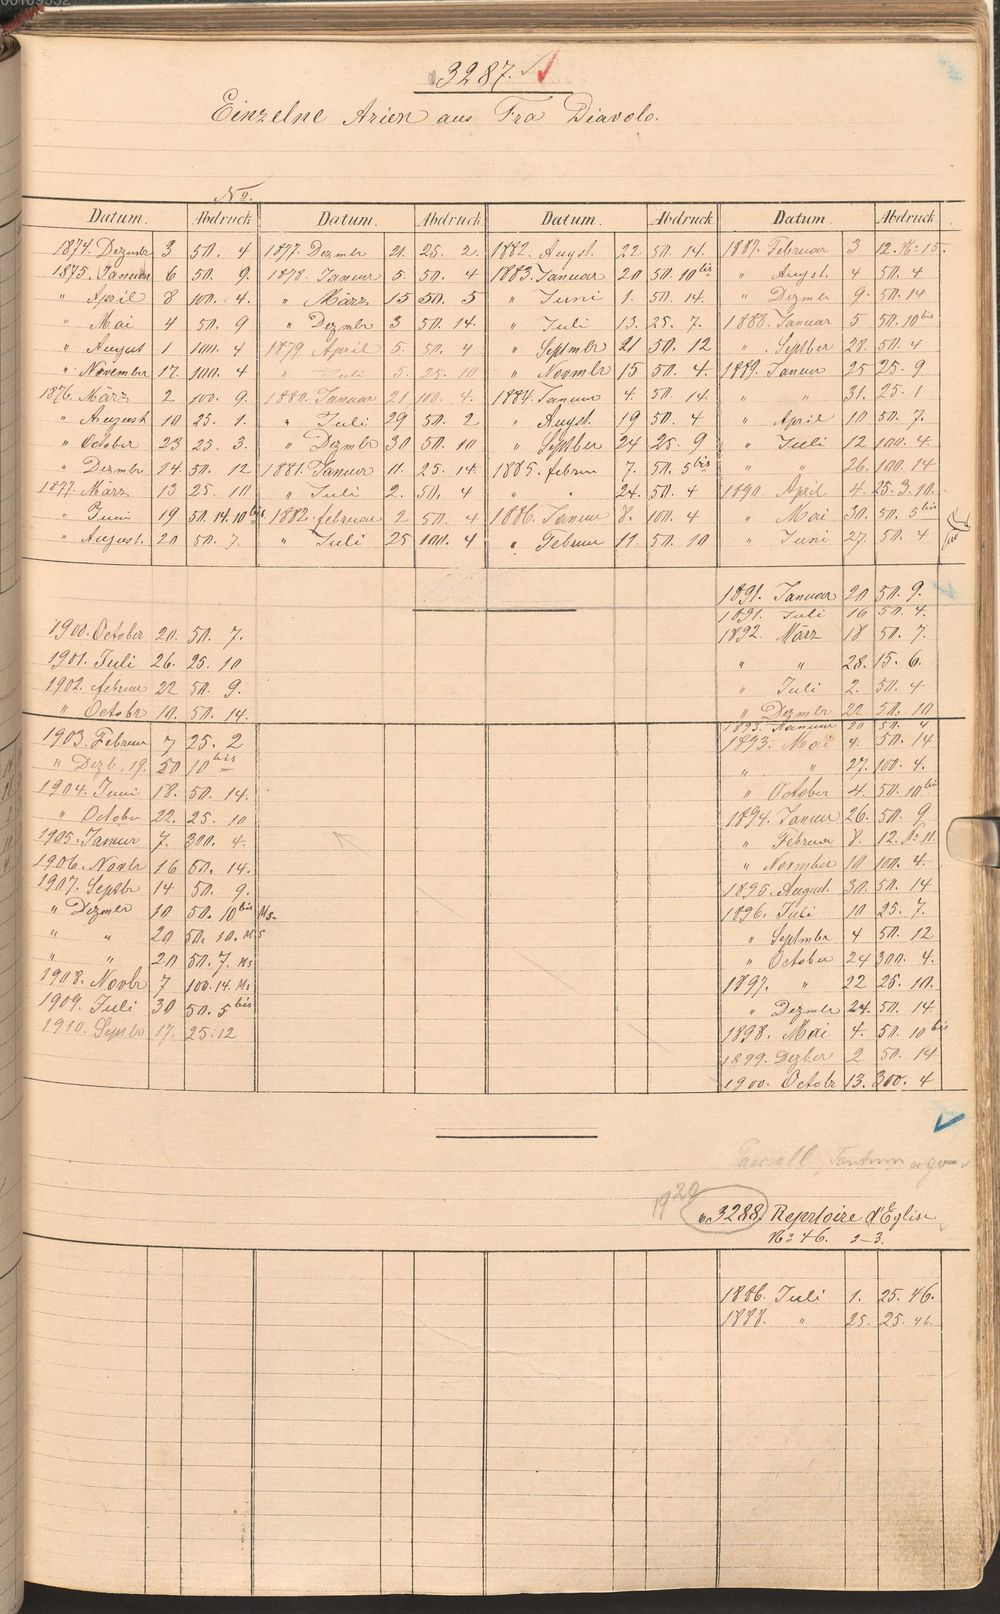 3287.
Einzelne Arien aus Fra Diavolo.
No.
Datum. Abdruck Datum. Abdruck Datum. Abdruck Datum. Abdruck
1874. Dezmbr 3 50. 4
1875. Januar 6 50. 9.
" April 8 100. 4.
" Mai 4 50. 9
" August 1 100. 4
" November 17. 100. 4
1876. März 2 100. 9.
" August 10 25. 1.
" October 23 25. 3.
" Dezmbr 14. 50. 12
1877. März 13 25. 10
" Juni 19 50. 14. 10 bis
" August. 20 50. 7.
1877. Dezmbr 21. 25. 2.
1878. Januar 5. 50. 4
" März 15 50. 5
" Dezmbr 3 50. 14.
1879 April 5. 50. 4
" Juli 5. 25. 10
1880. Januar 21 100. 4.
" Juli 29 50. 2
" Dezmbr 30 50. 10
1881. Januar 11. 25. 14
" Juli 2. 50. 4
1882. februar 2 50. 4
" Juli 25 100. 4
1882. Augst. 22 50. 14.
1883. Januar 20 50. 10 bis
" Juni 1. 50. 14.
" Juli 13. 25. 7.
" Septmbr 21 50. 12
" Novmbr 15 50. 4.
1884. Januar 4. 50. 14.
" Augst. 19 50. 4
" Septber 24 25. 9
1885. februr 7. 50. 5 bis
" " 24. 50. 4
1886. Januar 8. 100. 4
" Februar 11. 50. 10
1887. Februar 3 12. No 15.
" Augst. 4 50. 4
" Dezmbr 9. 50. 14
1888. Januar 5 50. 10 bis
" Septber 28. 50. 4
1889. Januar 25 25. 9
" " 31. 25. 1
" April 10 50. 7.
" Juli 12 100. 4.
" " 26. 100. 14
1890. April 4. 25. 3. 10.
" Mai 30. 50. 5 bis
" Juni 27. 50. 4
1891. Januar 20 50. 9.
1891. Juli 16 50. 4.
1892. März 18 50. 7.
" " 28. 15. 6.
" Juli 2. 50. 4
" Dezmbr 22 50. 10
1893. Januar 20 50. 4
1893. Mai 4. 50. 14
" " 27. 100. 4.
" October 4. 50. 10 bis
1894. Januar 26. 50. 9
" Februar 8. 12. No 11.
" November 10 100. 4.
1895. August. 30. 50. 14
1896. Juli 10 25. 7.
" Septmbr 4 50. 12
" October 24 300. 4.
1897. " 22 25. 10.
" Dezmbr 24. 50. 14
1898. Mai 4. 50. 10 bis
1899. Dezber 2 50. 14
1900. Octobr 13. 300. 4
1900. October 20. 50. 7.
1901. Juli 26. 25. 10
1902. februar 22 50. 9.
" Octobr 10. 50. 14.
1903. Februar 7 25. 2
" Dezb. 19. 50 10 bis
1904. Juni 18. 50. 14.
" October 22. 25. 10
1905. Januar 7. 300. 4.
1906. Novbr 16 50. 14.
1907. Septbr 14 50. 9.
" Dezmbr 10 50. 10 bis Ms.
" " 20 50. 10. Ms
" " 20 50. 7. Ms
1908. Novbr 7 100. 14. Ms.
1909. Juli 30 50. 5 bis
1910. Septbr 17. 25. 12
1920
3288. Repertoire d'Eglise
No 46. 2-3.
1886. Juli 1. 25. 46.
1888. " 25. 25. 46.